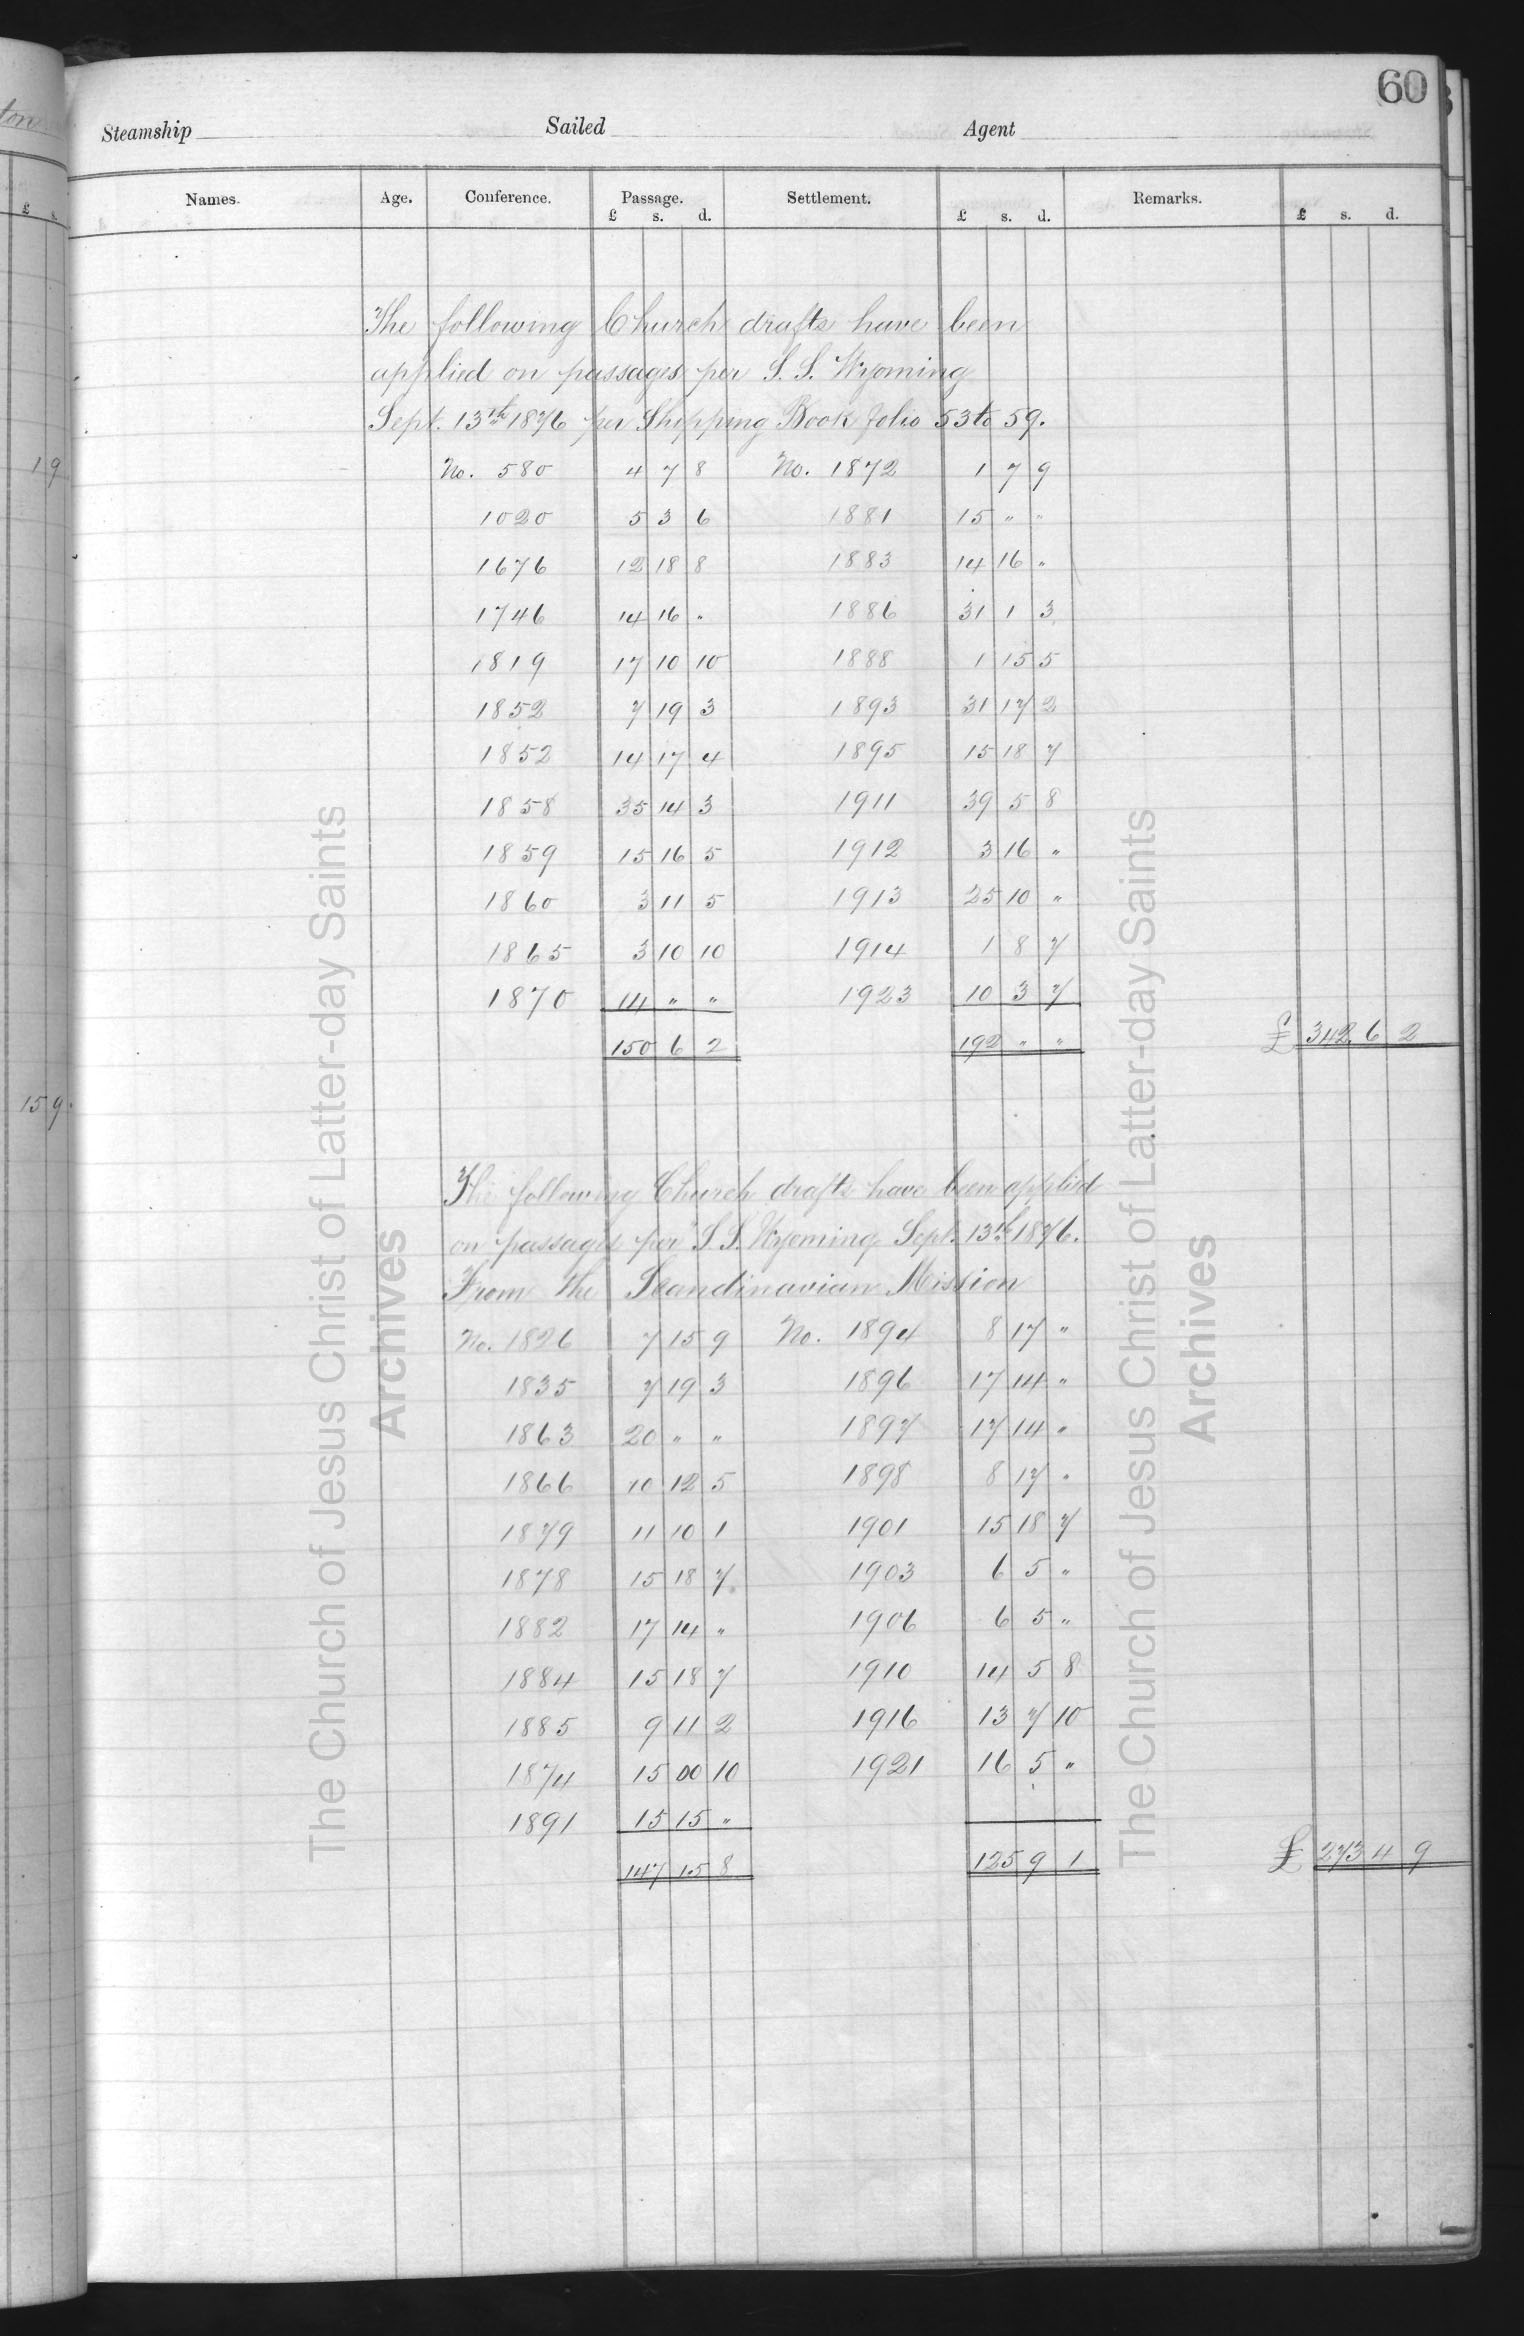 60
Steamship Sailed Agent
Names. Age. Conference. Passage. Settlement. Remarks.
£ s. d. £ s. d. £ s. d.
The following Church drafts have been
applied on passages per S. S. Wyoming
Sept. 13th 1876 per Shipping Book folio 53 to 59.
No. 580 4 7 8 No. 1872 1 7 9
1020 5 3 6 1881 15 " "
1676 12 18 8 1883 14 16 "
1746 14 16 " 1886 31 1 3
1819 17 10 10 1888 1 15 5
1852 7 19 3 1893 31 17 2
1852 14 17 4 1895 15 18 7
1858 35 14 3 1911 39 5 8
1859 15 16 5 1912 3 16 "
1860 3 11 5 1913 25 10 "
1865 3 10 10 1914 1 8 7
1870 14 " " 1923 10 3 7
150 6 2 192 " " £ 342 6 2
The following Church drafts have been applied
on passages per S. S. Wyoming Sept. 13th 1876.
From the Scandinavian Mission
No. 1826 7 15 9 No. 1894 8 17 "
1835 7 19 3 1896 17 14 "
1863 20 " " 1897 17 14 "
1866 10 12 5 1898 8 17 "
1879 11 10 1 1901 15 18 7
1878 15 18 7 1903 6 5 "
1882 17 14 " 1906 6 5 "
1884 15 18 7 1910 14 5 8
1885 9 11 2 1916 13 7 10
1874 15 00 10 1921 16 5 "
1891 15 15 "
147 15 8 125 9 1 £ 273 4 9
The Church of Jesus Christ of Latter-day Saints
Archives
The Church of Jesus Christ of Latter-day Saints
Archives
ton
£ s.
19
15 9